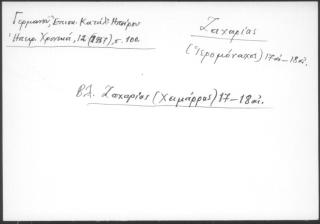 Γερμανού, Επισκ. Κατάλ. Ηπείρου
Ηπειρ. Χρονικά, 12 (1937), σ. 100.
Ζαχαρίας
(Ιερομόναχος) 17 αι – 18 αι.
Βλ. Ζαχαρίας (Χειμάρρας) 17 – 18 αι.